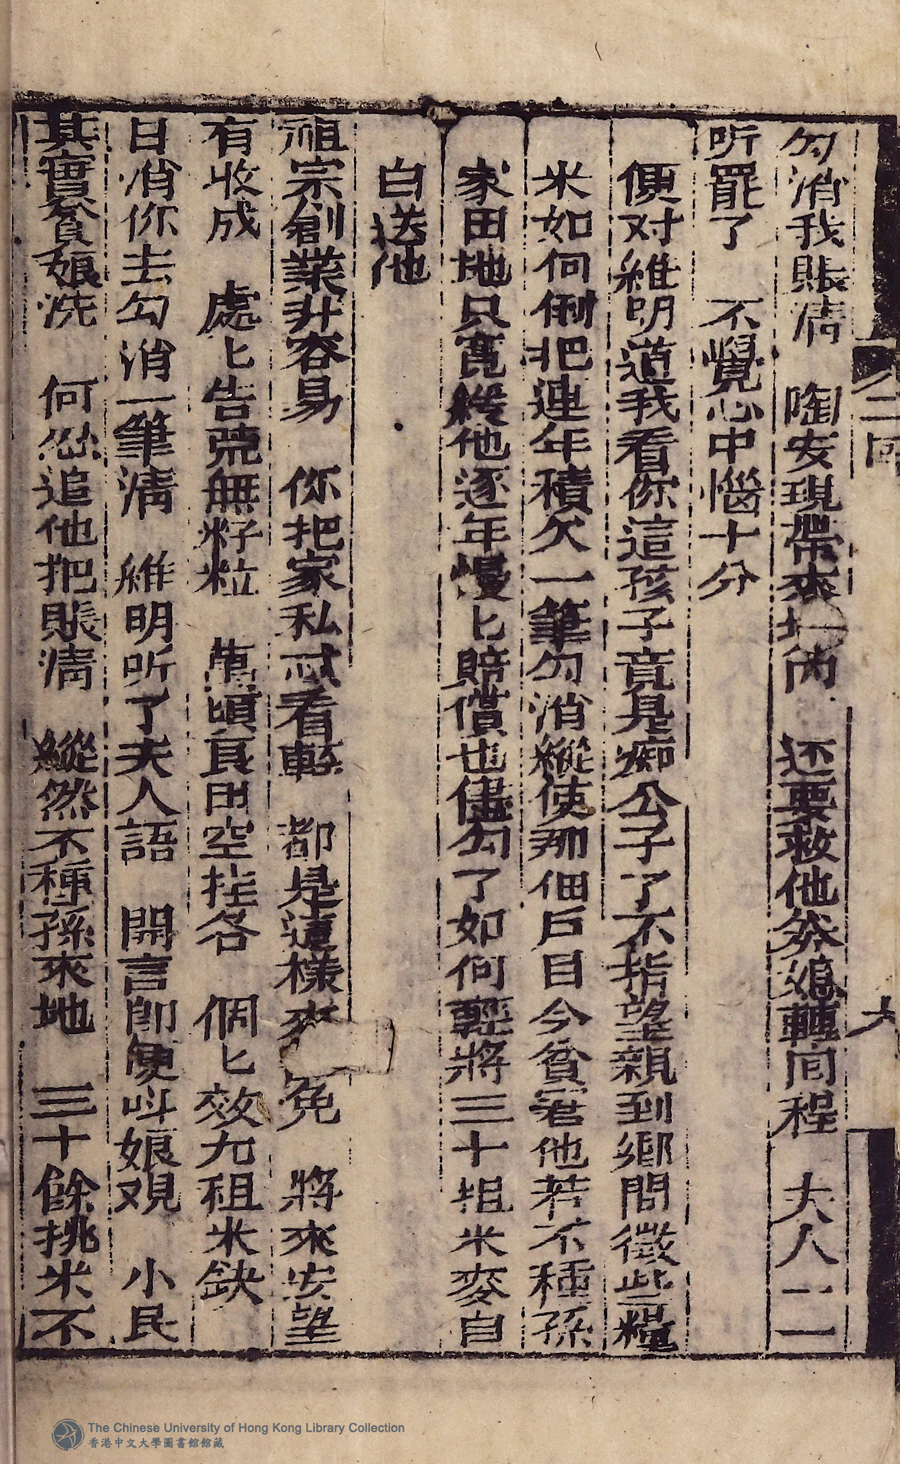 二
六
勾消我賬清　陶安現帶來坵內　还要救他爷娘轉囘程　夫人一一
听罷了　不覺心中惱十分
便对維明道我看你這孩子竟是痴公子了不指望親到鄉問徵些糧
米如何倒把連年積欠一筆勾消縱使那佃戶目今貧窘他若不種孫
家田地只寬緩他逐年慢匕賠償也儘勾了如何輕將三十担米麥自
白送他
祖宗創業非容易　你把家私忒看輕　都是這樣來免　將來安望
有收成　處匕告荒無籽粒　萬頃良田空挂名　個匕效尤租米缺
日消你去勾消一筆清　維明听了夫人語　開言卽便叫娘覌　小民
其實貧如洗　何忍追他把賬清　縱然不種孫家地　三十餘挑米不
The Chinese University of Hong Kong Library Collection
香港中文大學圖書館館藏